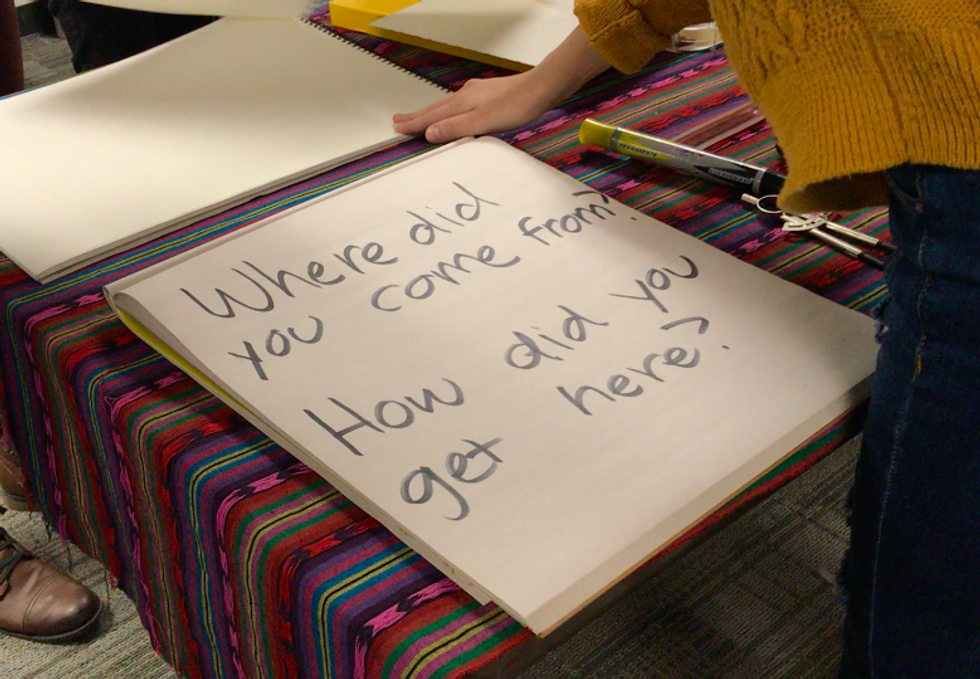 Where did
you come from?
How did you
get here?